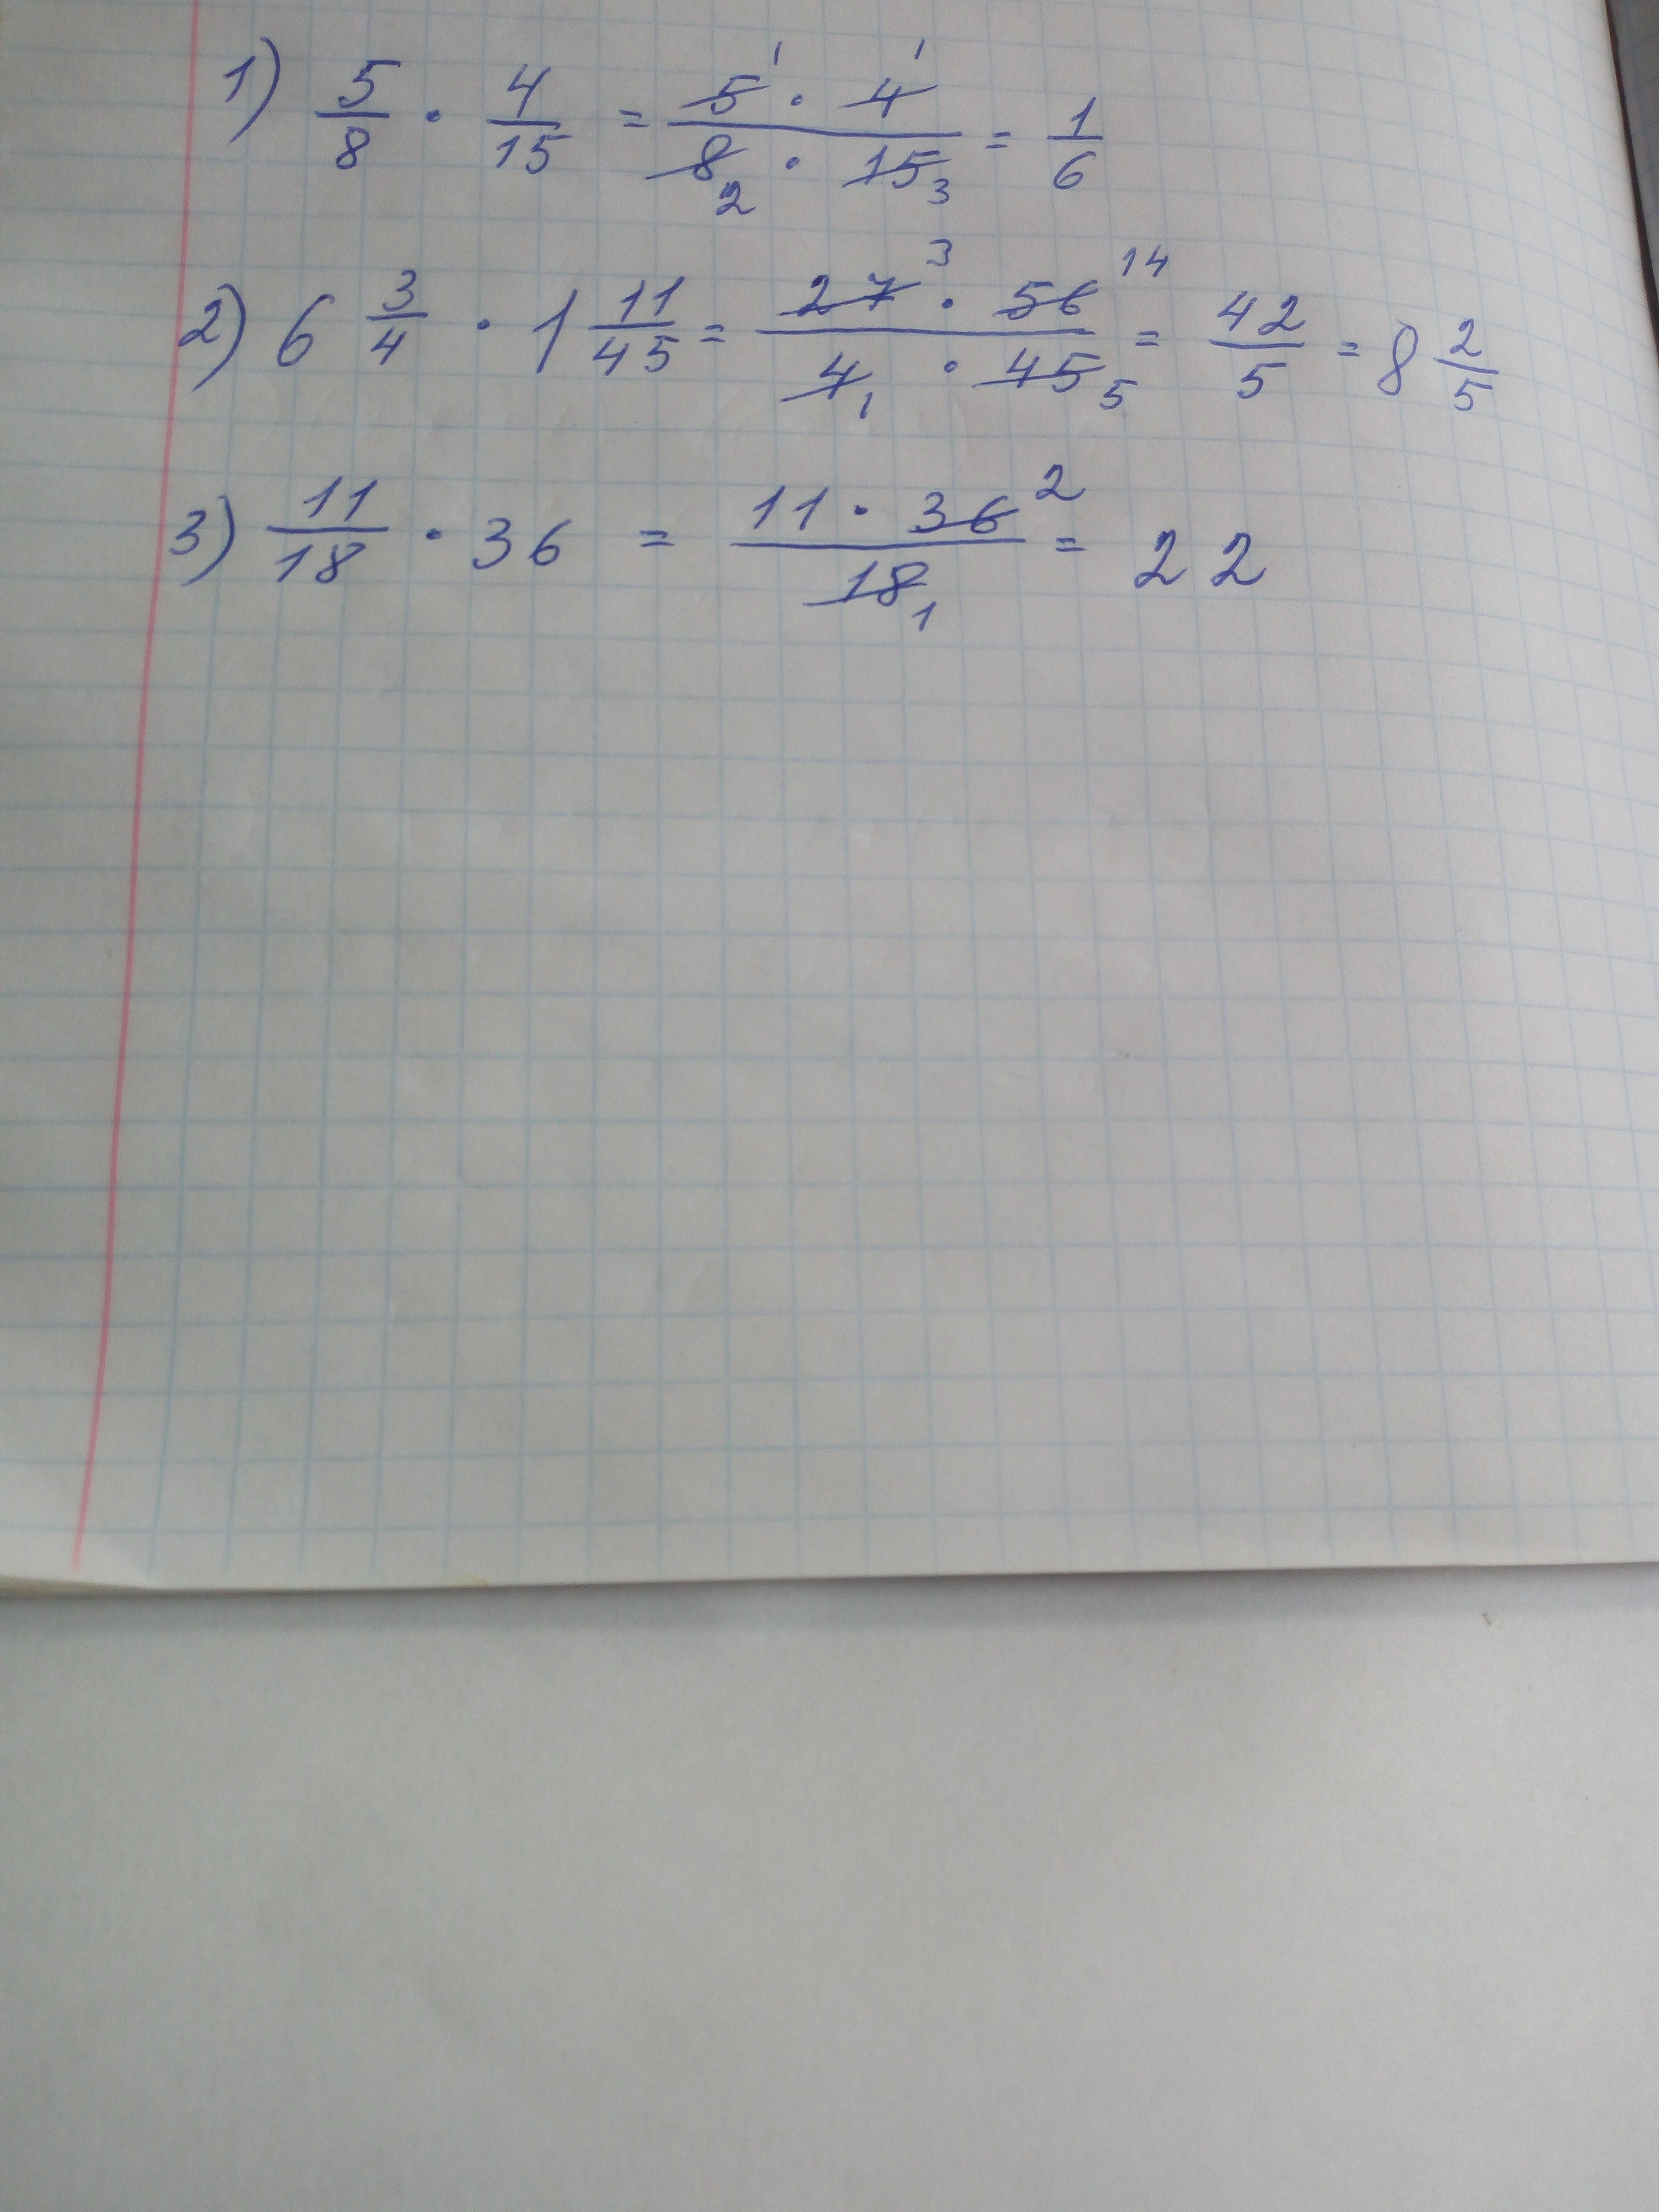 1) 5/8 · 4/15 = 5¹ · 4¹ / 8₂ · 15₃ = 1/6
2) 6 3/4 · 1 11/45 = 27³ · 56¹⁴ / 4₁ · 45₅ = 42/5 = 8 2/5
3) 11/18 · 36 = 11 · 36² / 18₁ = 22